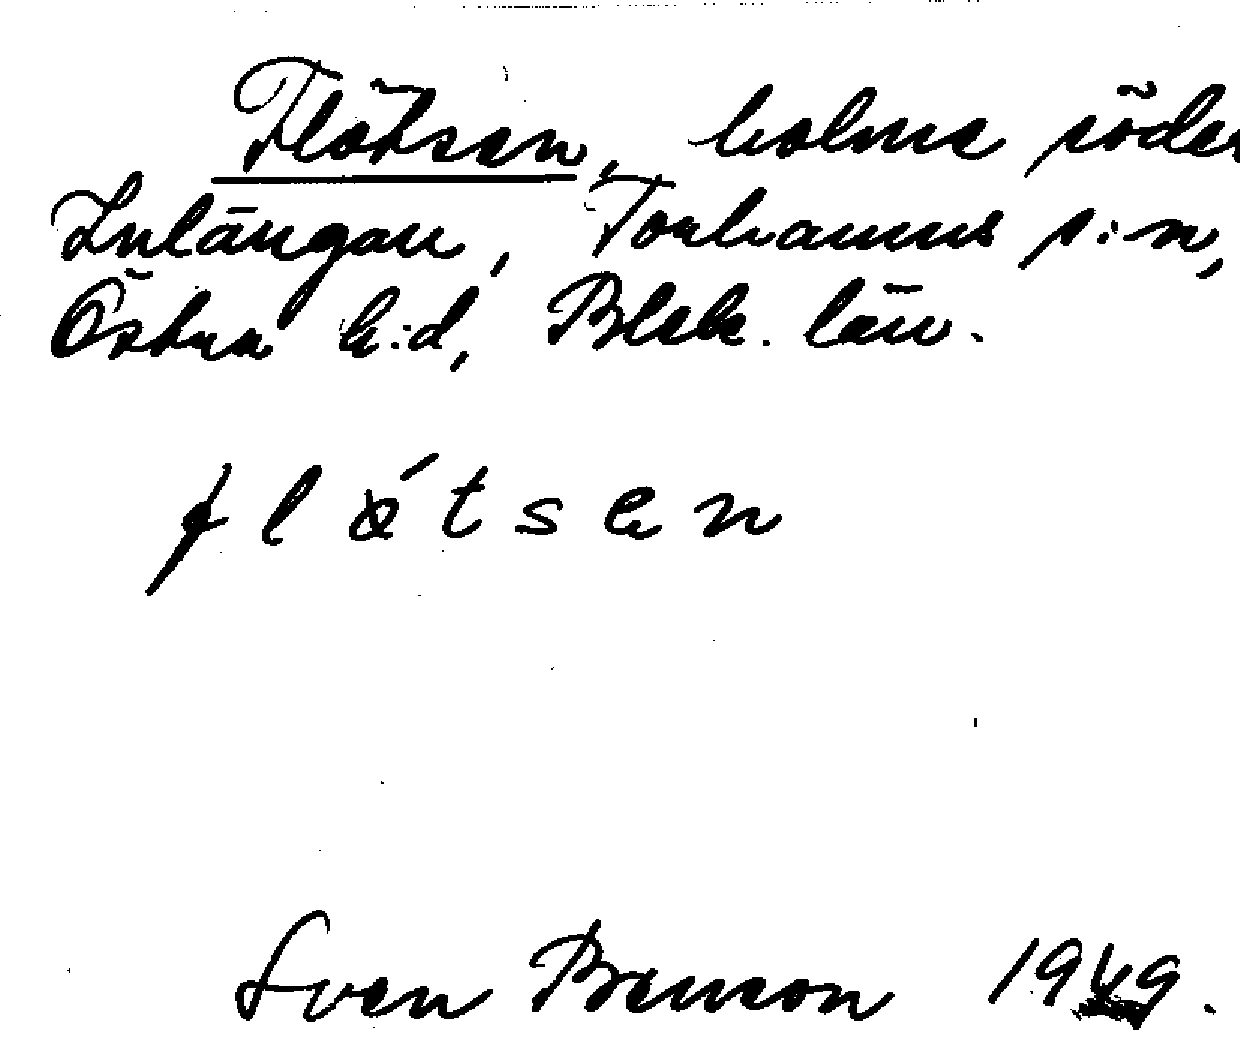 Flötsen, holme söder
Inlängan, Torhamns s:n,
Östra h:d, Blek. län.
flǿtsen
Sven Benson 1949.